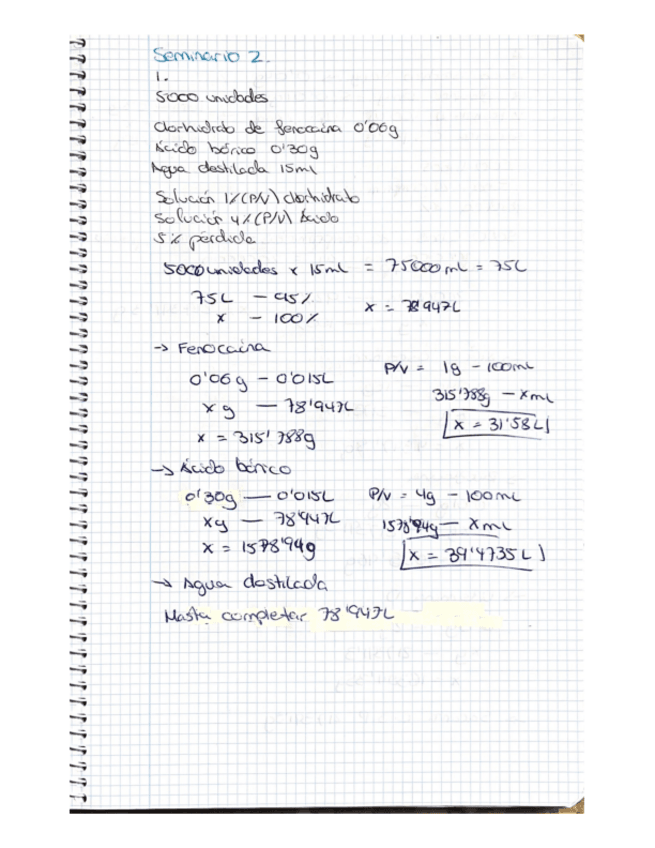 Seminario 2.
1.
5000 unidades
Clorhidrato de fenocaina 0'06g
Ácido bórico 0'30g
Agua destilada 15ml
Solución 1% (P/V) clorhidrato
Solución 4% (P/V) Ácido
5% pérdida
5000 unidades x 15ml = 75000 ml = 75L
75L — 95%
x — 100%
x = 78'947L
→ Fenocaina
0'06g — 0'015L
x g — 78'947L
x = 315'788g
P/V = 1g — 100ml
315'788g — x ml
x = 31'58 L
→ Ácido bórico
0'30g — 0'015L
xg — 78'947L
x = 1578'94g
P/V = 4g — 100ml
1578'94g — x ml
x = 39'4735 L
→ Agua destilada
Hasta completar 78'947L